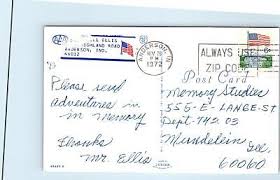 ELLIS
HIGHLAND ROAD
ANDERSON, IND.
46012
ANDERSON, IN
PM
1972
ALWAYS USE
ZIP CODE
Post Card
Please send
adventures
in
in memory
Thanks
Mr. Ellis
Memory Studies
555-E-LANGE-ST
Dept-742 03
Mundelein
Ill.
60060